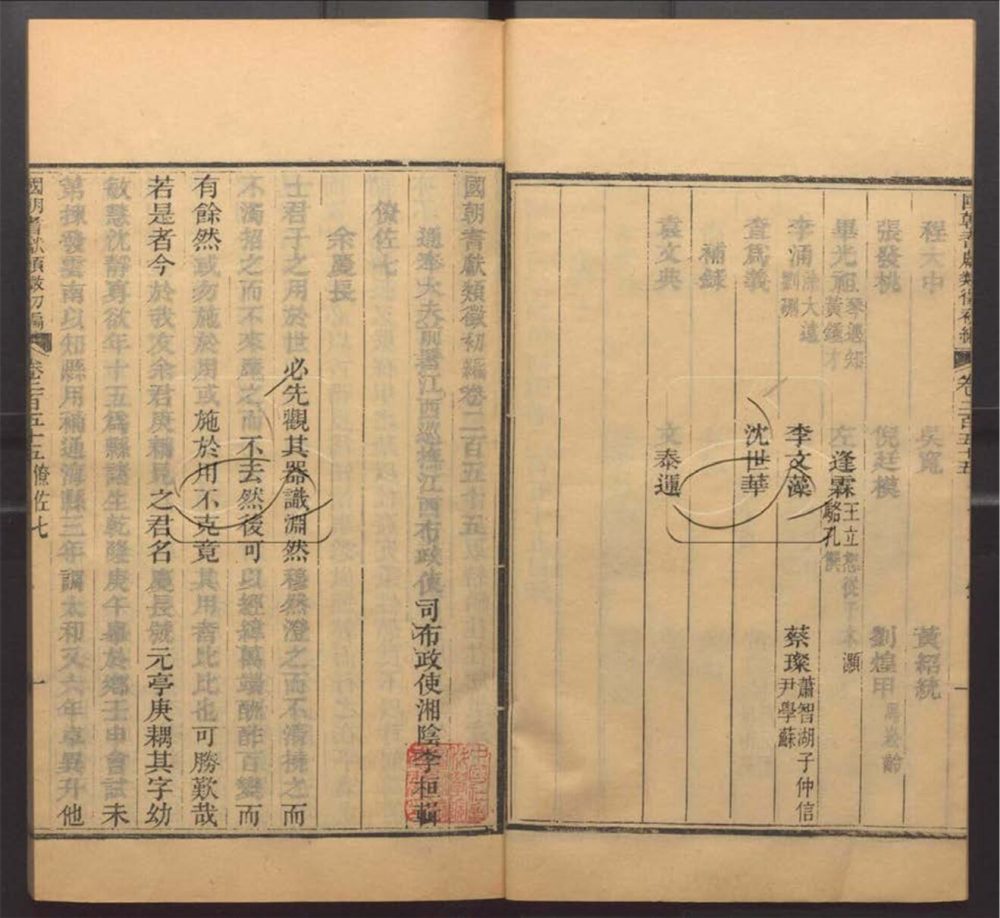 程大中
吳寬
黃紹統
張發桃
倪廷模
劉煌甲
畢光祖
左
逢霖
王立
駱孔
灝
李涌
李文藻
蔡璨
蕭智湖子仲信
尹學蘇
查爲義
沈世華
補錄
袁文典
文泰運
國朝耆獻類徵初編卷二百五十五
通奉大夫前署江西巡撫江西布政使司布政使湘陰李桓輯
僚佐七
余慶長
士君子之用於世必先觀其器識淵然穆然澄之而不清撓之而
不濁招之而不來麾之而不去然後可以經緯萬端酬酢百變而
有餘然或勿施於用或施於用不克竟其用者比比也可勝歎哉
若是者今於我友余君庚耦見之君名慶長號元亭庚耦其字幼
敏慧沈靜真欲年十五爲縣諸生乾隆庚午舉於鄉壬申會試未
第揀發雲南以知縣用補通海縣三年調太和又六年卓異升他
國朝耆獻類徵初編
卷二百五十五
僚佐七
一